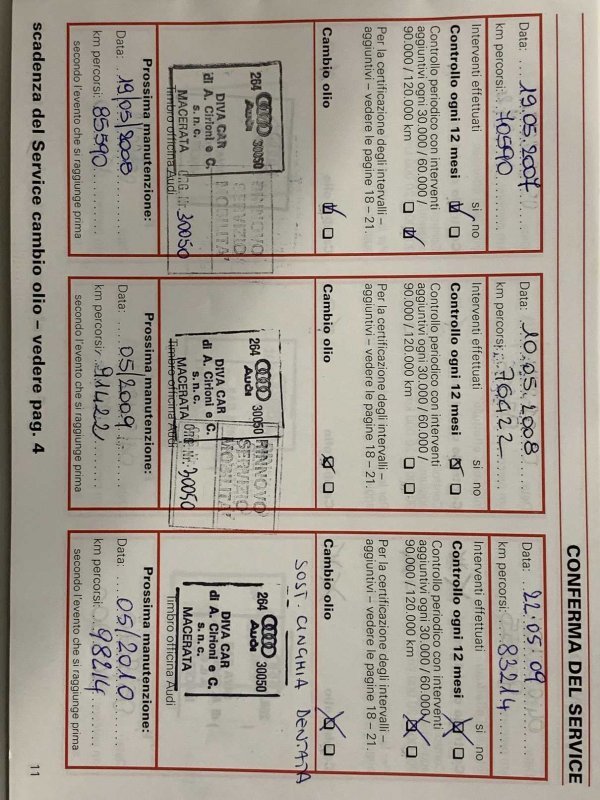 CONFERMA DEL SERVICE
Data: 19.05.2007
km percorsi: 70590
Interventi effettuati si no
Controllo ogni 12 mesi
Controllo periodico con interventi
aggiuntivi ogni 30.000 / 60.000 /
90.000 / 120.000 km
Per la certificazione degli intervalli –
aggiuntivi – vedere le pagine 18 – 21.
Cambio olio
264 Audi 30050
DIVA CAR
di A. Cirioni e C.
s.n.c.
MACERATA
RINNOVO
SERVIZIO
MOBILITA'
Org. Nr. 30050
Timbro officina Audi
Prossima manutenzione:
Data: 19.05.2008
km percorsi: 85590
secondo l'evento che si raggiunge prima
Data: 10.05.2008
km percorsi: 76422
Interventi effettuati si no
Controllo ogni 12 mesi
Controllo periodico con interventi
aggiuntivi ogni 30.000 / 60.000 /
90.000 / 120.000 km
Per la certificazione degli intervalli –
aggiuntivi – vedere le pagine 18 – 21.
Cambio olio
264 Audi 30050
DIVA CAR
di A. Cirioni e C.
s.n.c.
MACERATA
RINNOVO
SERVIZIO
MOBILITA'
Org. Nr. 30050
Timbro officina Audi
Prossima manutenzione:
Data: 05/2009
km percorsi: 91422
secondo l'evento che si raggiunge prima
Data: 22.05.09
km percorsi: 83214
Interventi effettuati si no
Controllo ogni 12 mesi
Controllo periodico con interventi
aggiuntivi ogni 30.000 / 60.000 /
90.000 / 120.000 km
Per la certificazione degli intervalli –
aggiuntivi – vedere le pagine 18 – 21.
Cambio olio
SOST. CINGHIA DENTATA
264 Audi 30050
DIVA CAR
di A. Cirioni e C.
s.n.c.
MACERATA
Timbro officina Audi
Prossima manutenzione:
Data: 05/2010
km percorsi: 98214
secondo l'evento che si raggiunge prima
scadenza del Service cambio olio – vedere pag. 4
11